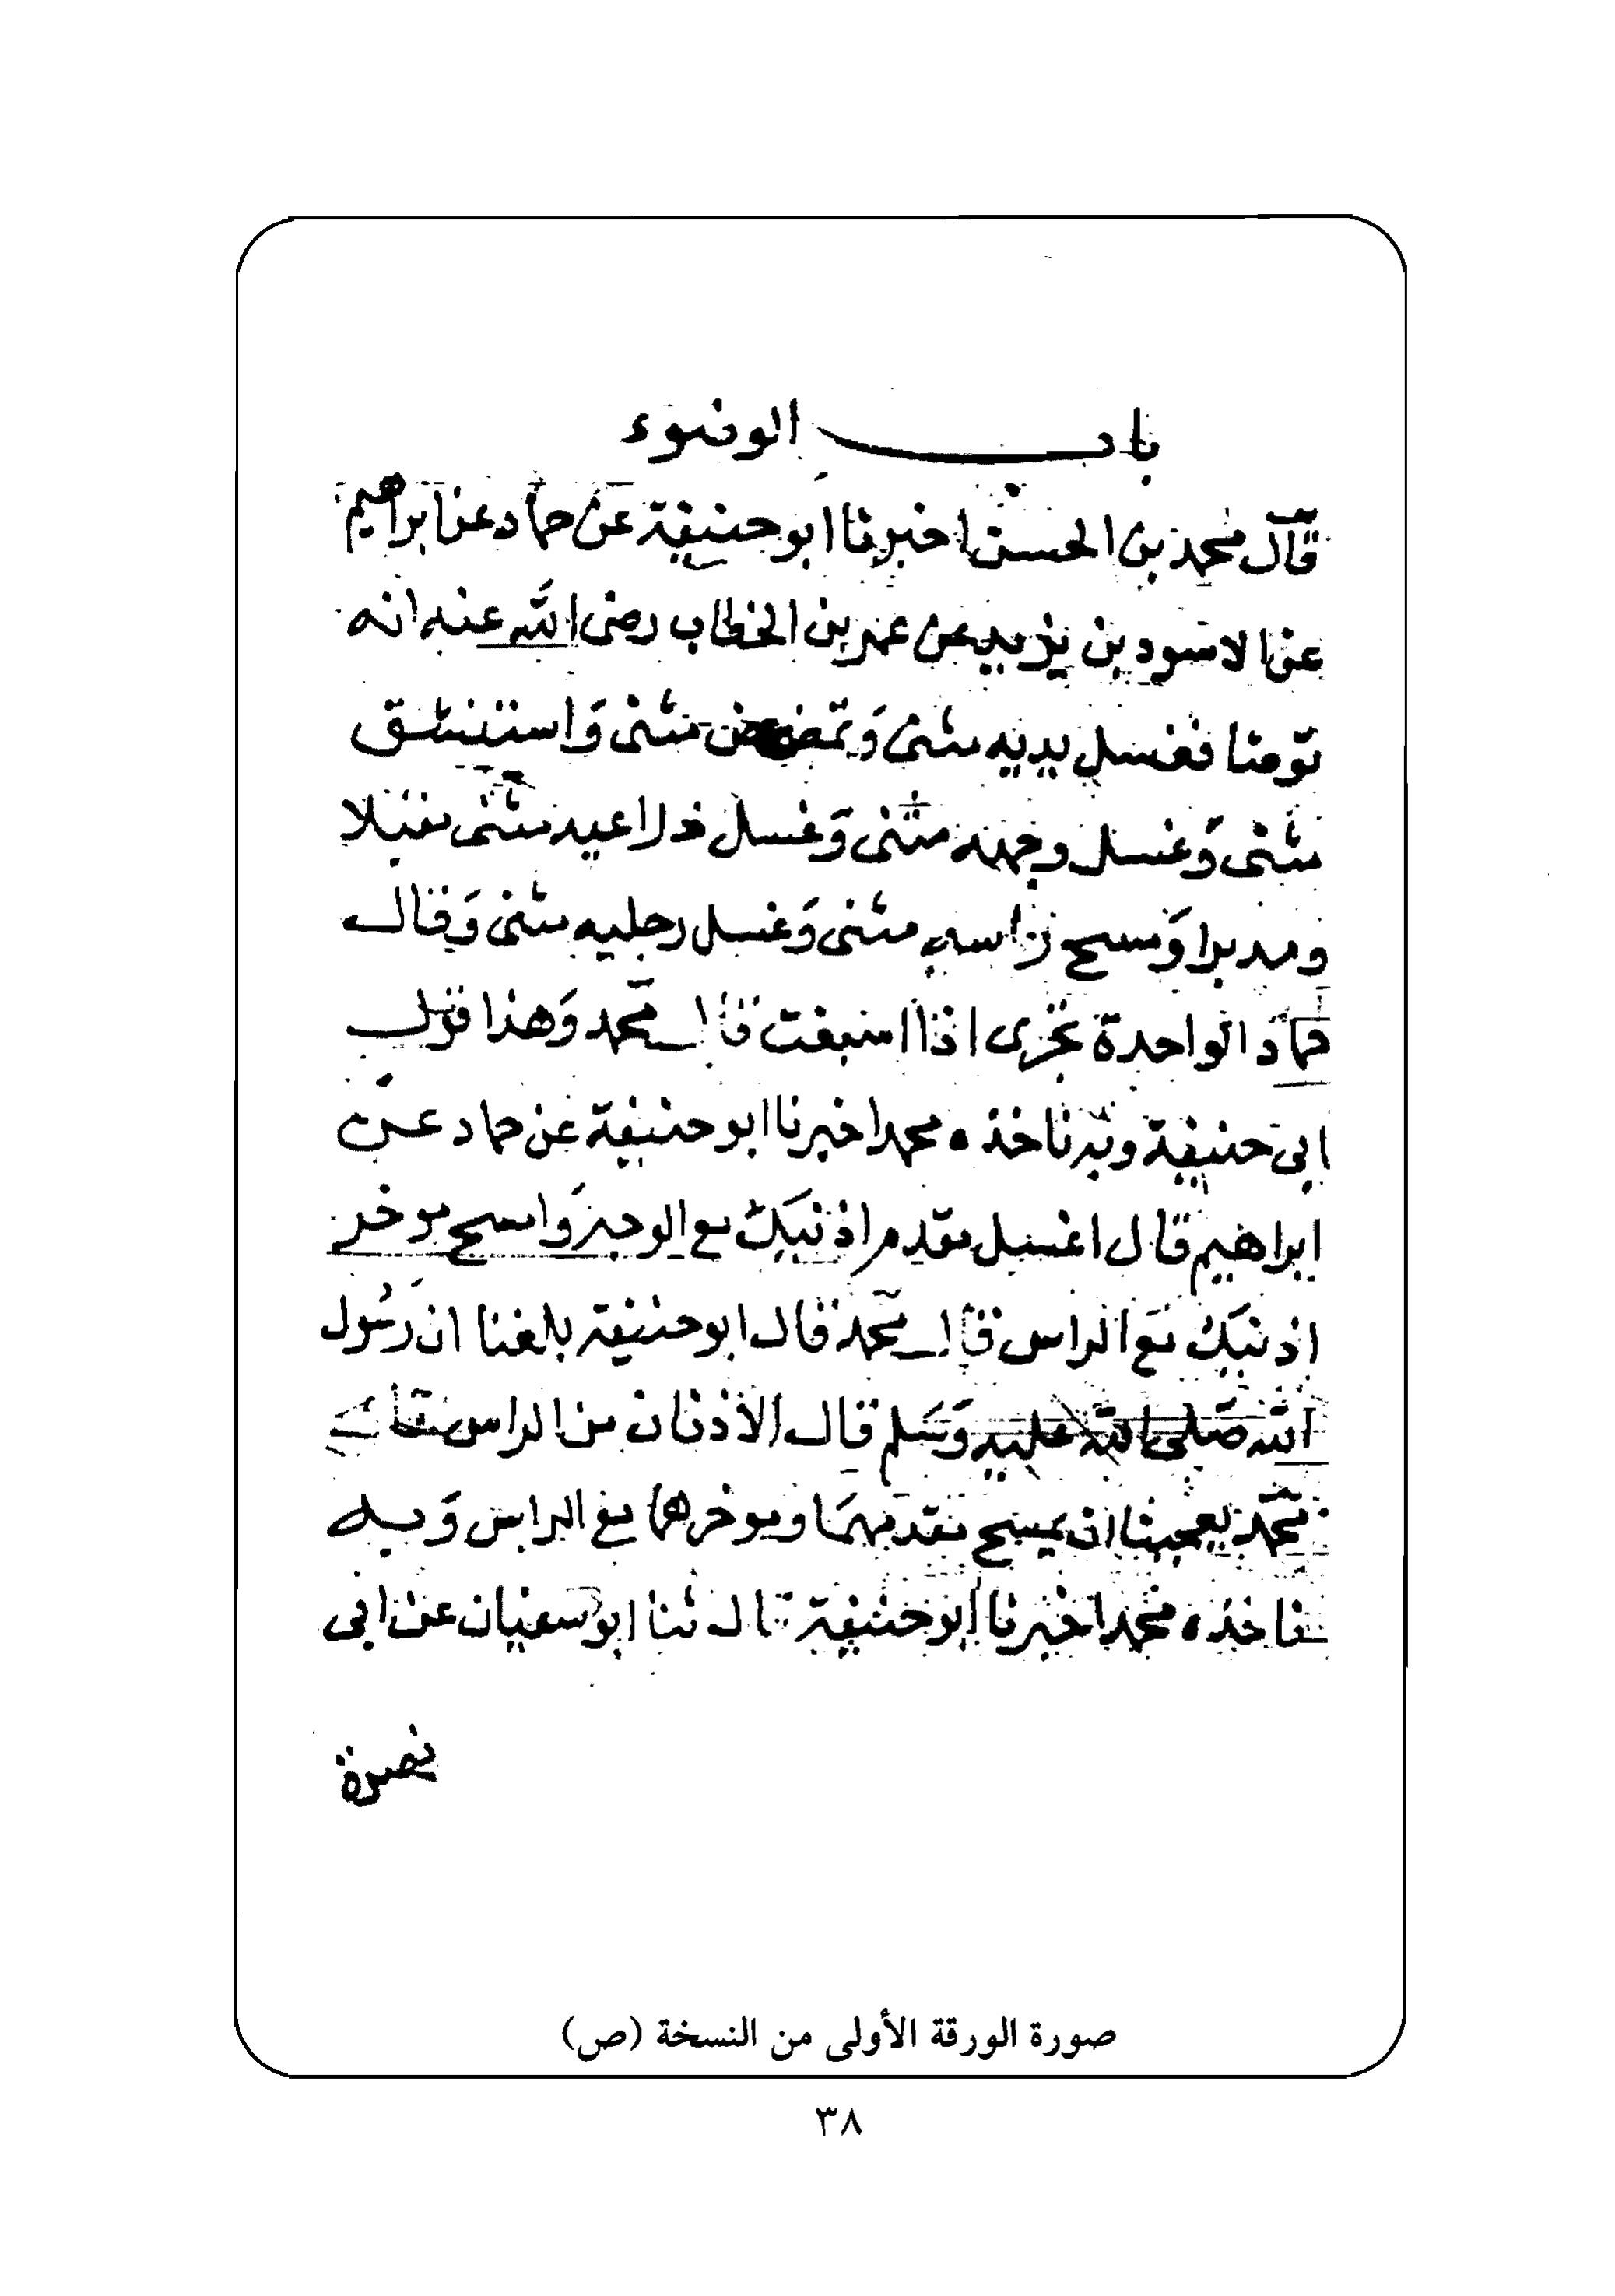 باب الوضوء
قال محمد بن الحسن اخبرنا ابو حنيفة عن حماد عن ابراهيم
عن الاسود بن يزيد عن عمر بن الخطاب رضى الله عنه انه
توضا فغسل يديه مثنى وَتمضمض مثنى وَاستنشق
مثنى وَغسل وجهه مثنى وَغسل ذراعيه مثنى مقبلا
ومدبرا وَمسح راسه مثنى وَغسل رجليه مثنى وَقال
حماد الواحدة تجزى اذا اسبغت قال محمد وَهذا قول
ابى حنيفة وبه ناخذ ه محمد اخبرنا ابو حنيفة عن حماد عن
ابراهيم قال اغسل مقدم اذنيك مع الوجه وَامسح موخر
اذنيك مع الراس قال محمد قال ابو حنيفة بلغنا ان رَسُول
الله صَلى الله عليه وَسَلم قال الاذنان من الراس قال
محمد يعجبنا ان يمسح مقدمهمَا وموخرهما مع الراس وَبه
ناخذ ه محمد اخبرنا ابو حنيفة قال ثنا ابو سفيان عن ابى
نضرة
صورة الورقة الأولى من النسخة (ص)
٣٨